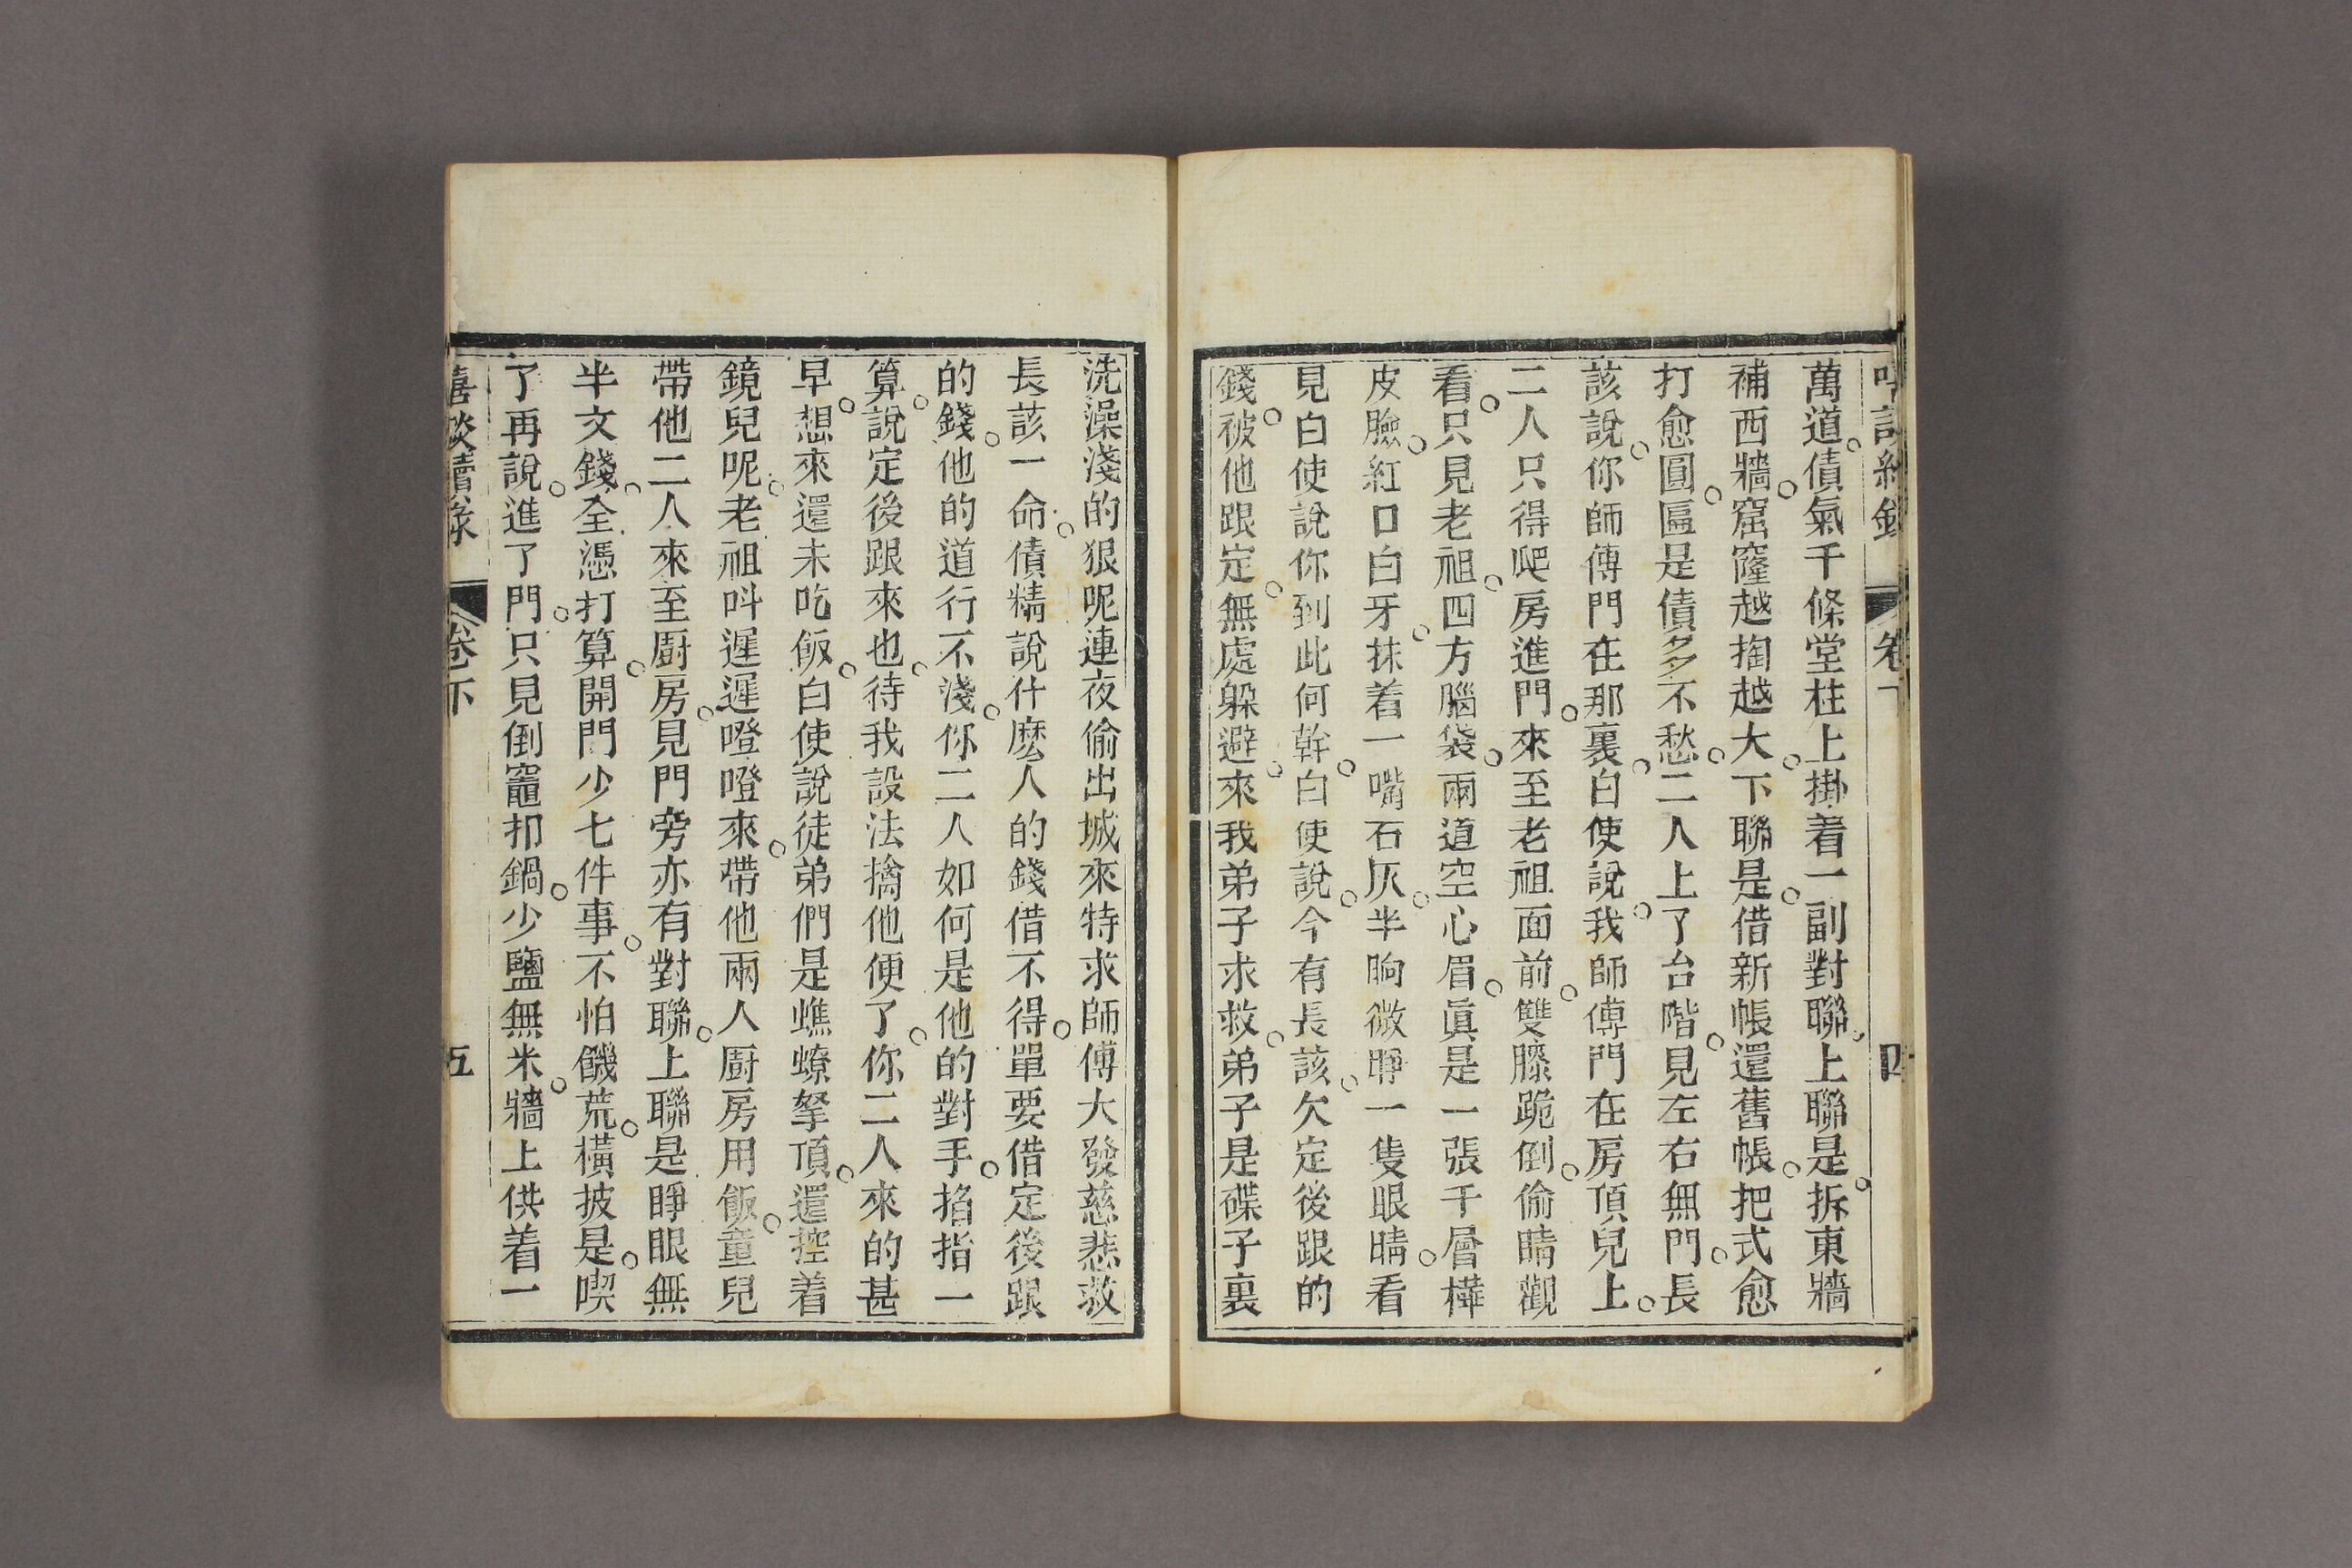 萬道。債氣千條堂柱上掛着一副對聯。上聯是。拆東牆
補西牆。窟窿越掏越大。下聯是。借新帳還舊帳。把式愈
打愈圓。匾是債多不愁。二人上了台階。見左右無門。長
該說。你師傅門在那裏。白使說。我師傅門在房頂兒上。
二人只得爬房進門。來至老祖面前。雙膝跪倒。偷睛觀
看。只見老祖。四方腦袋。兩道空心眉。眞是一張千層樺
皮臉。紅口白牙。抹着一嘴石灰。半晌微睜一隻眼睛。看
見白使說你到此何幹。白使說。今有長該。欠定後跟的
錢。被他跟定。無處躲避。來我弟子求救。弟子是碟子裏
洗澡淺的狠呢連夜偷出城來特求師傅大發慈悲救
長該一命。債精說什麽人的錢借不得。單要借定後跟
的錢。他的道行不淺。你二人如何是他的對手。掐指一
算。說定後跟來也。待我設法擒他便了。你二人來的甚
早。想來還未吃飯。白使說徒弟們是蟭蟟拏頂。還控着
鏡兒呢。老祖呌遲遲噔噔來。帶他兩人厨房用飯。童兒
帶他二人來至厨房。見門旁亦有對聯。上聯是睜眼無
半文錢。全憑打算。開門少七件事。不怕饑荒。橫披是。喫
了再說。進了門。只見倒竈扣鍋。少鹽無米。牆上供着一
卷下
五